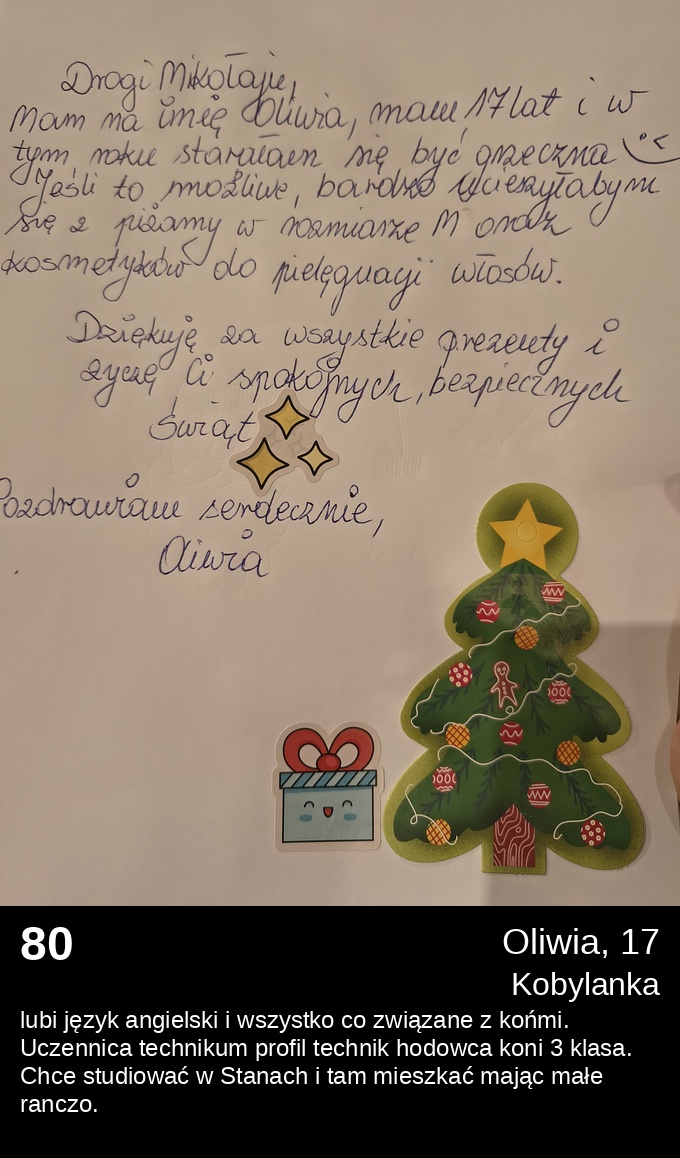 Drogi Mikołaju,
Mam na imię Oliwia, mam 17 lat i w
tym roku starałam się być grzeczna
Jeśli to możliwe, bardzo ucieszyłabym
się z piżamy w rozmiarze M oraz
kosmetyków do pielęgnacji włosów.
Dziękuję za wszystkie prezenty i
życzę Ci spokojnych, bezpiecznych
Świąt
Pozdrawiam serdecznie,
Oliwia
80
Oliwia, 17
Kobylanka
lubi język angielski i wszystko co związane z końmi.
Uczennica technikum profil technik hodowca koni 3 klasa.
Chce studiować w Stanach i tam mieszkać mając małe
ranczo.